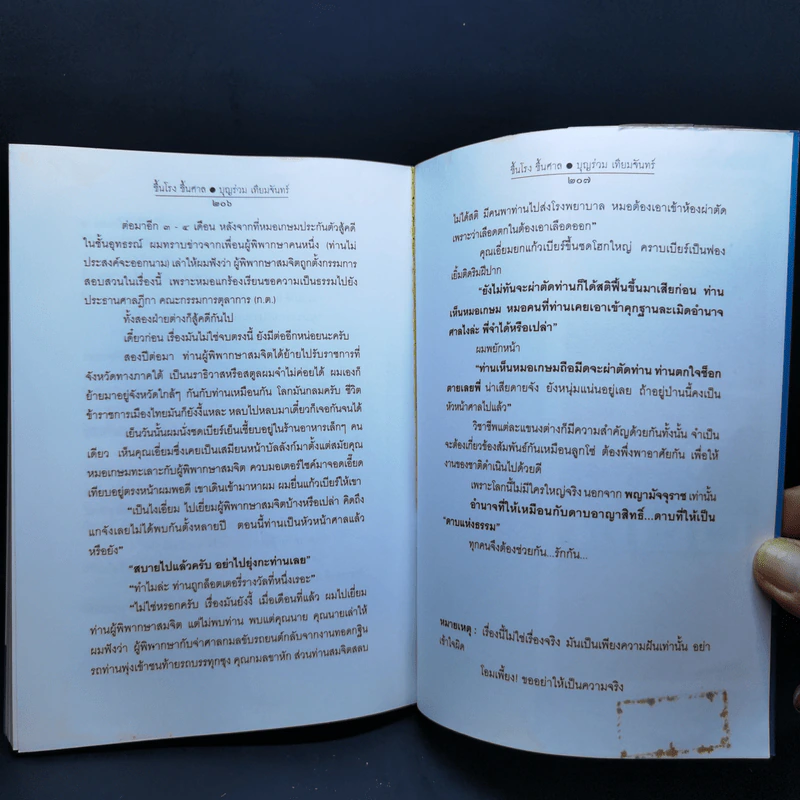 ขึ้นโรง ขึ้นศาล ● บุญร่วม เทียมจันทร์
๒๐๖
ต่อมาอีก ๓ - ๔ เดือน หลังจากที่หมอเกษมประกันตัวสู้คดี
ในชั้นอุทธรณ์ ผมทราบข่าวจากเพื่อนผู้พิพากษาคนหนึ่ง (ท่านไม่
ประสงค์จะออกนาม) เล่าให้ผมฟังว่า ผู้พิพากษาสมจิตถูกตั้งกรรมการ
สอบสวนในเรื่องนี้ เพราะหมอแกร้องเรียนขอความเป็นธรรมไปยัง
ประธานศาลฎีกา คณะกรรมการตุลาการ (ก.ต.)
ทั้งสองฝ่ายต่างก็สู้คดีกันไป
เดี๋ยวก่อน เรื่องมันไม่ใช่จบตรงนี้ ยังมีต่ออีกหน่อยนะครับ
สองปีต่อมา ท่านผู้พิพากษาสมจิตได้ย้ายไปรับราชการที่
จังหวัดทางภาคใต้ เป็นนราธิวาสหรือสตูลผมจำไม่ค่อยได้ ผมเองก็
ย้ายมาอยู่จังหวัดใกล้ๆ กันกับท่านเหมือนกัน โลกมันกลมครับ ชีวิต
ข้าราชการเมืองไทยมันก็ยังงี้แหละ หลบไปหลบมาเดี๋ยวก็เจอกันจนได้
เย็นวันนั้นผมนั่งซดเบียร์เย็นเชี้ยบอยู่ในร้านอาหารเล็กๆ คน
เดียว เห็นคุณเอี่ยมซึ่งเคยเป็นเสมียนหน้าบัลลังก์มาตั้งแต่สมัยคุณ
หมอเกษมทะเลาะกับผู้พิพากษาสมจิต ควบมอเตอร์ไซค์มาจอดเอี๊ยด
เทียบอยู่ตรงหน้าผมพอดี เขาเดินเข้ามาหาผม ผมยื่นแก้วเบียร์ให้เขา
"เป็นไงเอี่ยม ไปเยี่ยมผู้พิพากษาสมจิตบ้างหรือเปล่า คิดถึง
แกจังเลยไม่ได้พบกันตั้งหลายปี ตอนนี้ท่านเป็นหัวหน้าศาลแล้ว
หรือยัง"
"สบายไปแล้วครับ อย่าไปยุ่งกะท่านเลย"
"ทำไมล่ะ ท่านถูกล็อตเตอรี่รางวัลที่หนึ่งเรอะ"
"ไม่ใช่หรอกครับ เรื่องมันยังงี้ เมื่อเดือนที่แล้ว ผมไปเยี่ยม
ท่านผู้พิพากษาสมจิต แต่ไม่พบท่าน พบแต่คุณนาย คุณนายเล่าให้
ผมฟังว่า ผู้พิพากษากับจ่าศาลกมลขับรถยนต์กลับจากงานทอดกฐิน
รถท่านพุ่งเข้าชนท้ายรถบรรทุกซุง คุณกมลขาหัก ส่วนท่านสมจิตสลบ
ขึ้นโรง ขึ้นศาล ● บุญร่วม เทียมจันทร์
๒๐๗
ไม่ได้สติ มีคนพาท่านไปส่งโรงพยาบาล หมอต้องเอาเข้าห้องผ่าตัด
เพราะว่าเลือดตกในต้องเอาเลือดออก"
คุณเอี่ยมยกแก้วเบียร์ขึ้นซดโฮกใหญ่ คราบเบียร์เป็นฟอง
เยิ้มติดริมฝีปาก
"ยังไม่ทันจะผ่าตัดท่านก็ได้สติฟื้นขึ้นมาเสียก่อน ท่าน
เห็นหมอเกษม หมอคนที่ท่านเคยเอาเข้าคุกฐานละเมิดอำนาจ
ศาลไงล่ะ พี่จำได้หรือเปล่า"
ผมพยักหน้า
"ท่านเห็นหมอเกษมถือมีดจะผ่าตัดท่าน ท่านตกใจช็อก
ตายเลยพี่ น่าเสียดายจัง ยังหนุ่มแน่นอยู่เลย ถ้าอยู่ป่านนี้คงเป็น
หัวหน้าศาลไปแล้ว"
วิชาชีพแต่ละแขนงต่างก็มีความสำคัญด้วยกันทั้งนั้น จำเป็น
จะต้องเกี่ยวข้องสัมพันธ์กันเหมือนลูกโซ่ ต้องพึ่งพาอาศัยกัน เพื่อให้
งานของชาติดำเนินไปด้วยดี
เพราะโลกนี้ไม่มีใครใหญ่จริง นอกจาก พญามัจจุราช เท่านั้น
อำนาจที่ให้เหมือนกับดาบอาญาสิทธิ์...ดาบที่ให้เป็น
"ดาบแห่งธรรม"
ทุกคนจึงต้องช่วยกัน...รักกัน...
หมายเหตุ : เรื่องนี้ไม่ใช่เรื่องจริง มันเป็นเพียงความฝันเท่านั้น อย่า
เข้าใจผิด
โอมเพี้ยง! ขออย่าให้เป็นความจริง